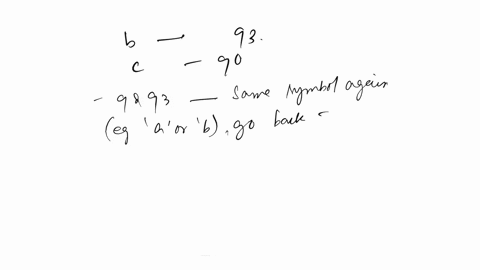 b — 93.
c — 90
- 9 & 93 — Same symbol again
(eg 'a' or 'b), go back -